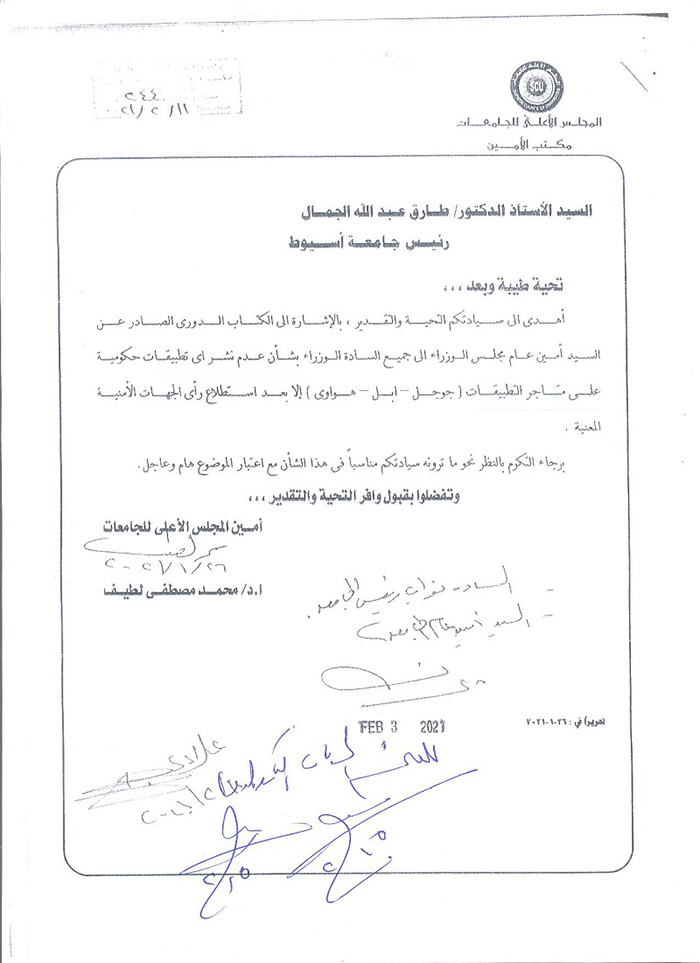 ٢٤٤
٢٠٢١/٢/١١
SCU
المجلس الأعلى للجامعات
مكتب الأمين
السيد الأستاذ الدكتور/ طارق عبد الله الجمال
رئيس جامعة أسيوط
تحية طيبة وبعد ،،،
أهدى الى سيادتكم التحية والتقدير ، بالإشارة الى الكتاب الدورى الصادر عن
السيد أمين عام مجلس الوزراء الى جميع السادة الوزراء بشأن عدم نشر اى تطبيقات حكومية
على متاجر التطبيقات ( جوجل – ابل – هواوى ) إلا بعد استطلاع رأى الجهات الأمنية
المعنية .
برجاء التكرم بالنظر نحو ما ترونه سيادتكم مناسباً فى هذا الشأن مع اعتبار الموضوع هام وعاجل.
وتفضلوا بقبول وافر التحية والتقدير ،،،
أمين المجلس الأعلى للجامعات
٢٠٢١/١/٢٦
ا.د/ محمد مصطفى لطيف
- السادة نواب رئيس الجامعة
- السيد أمين عام الجامعة
تحريرا في : ٢٦-١-٢٠٢١
FEB 3 2021